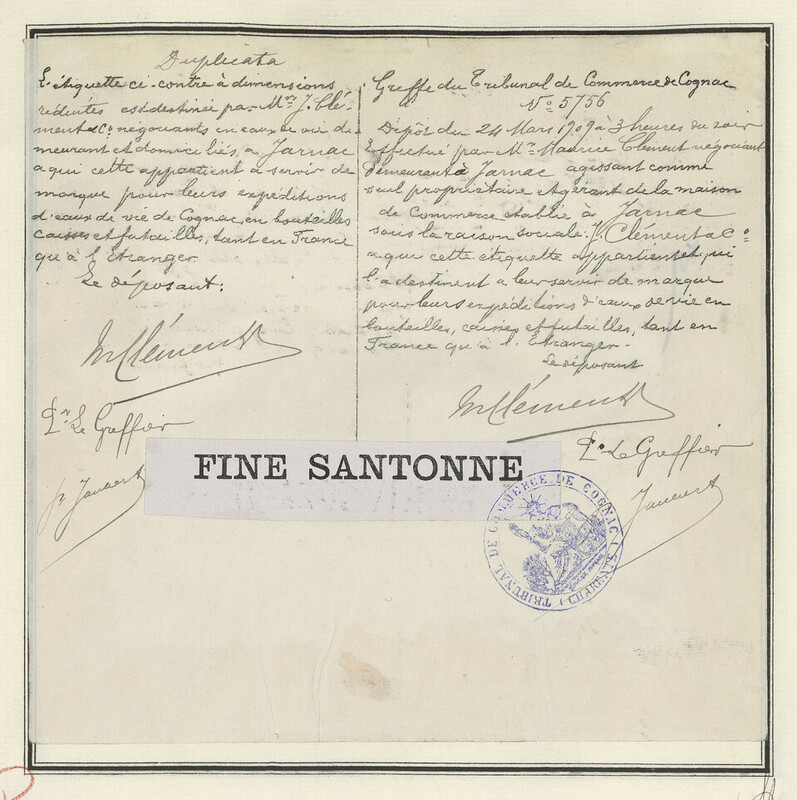 Duplicata
L'étiquette ci-contre à dimensions
réduites est destinée par Mrs J. Clé-
ment & Co négociants en eaux de vie de-
meurant et domiciliés, à Jarnac
a qui cette appartient à servir de
marque pour leurs expéditions
d'eaux de vie de Cognac, en bouteilles
caisses et futailles, tant en France
qu'à l'Etranger
Le déposant:
M Clément
Pr Le Greffier
Greffe du Tribunal de Commerce de Cognac
No 5756
Dépôt du 24 Mars 1909 à 3 heures du soir
Effectué par Mr Maurice Clément négociant
demeurant à Jarnac agissant comme
seul propriétaire et gérant de la maison
de Commerce établie à Jarnac
sous la raison sociale: J. Clément & Co
a que cette étiquette appartient et qui
l'a destinent a leur servir de marque
pour leurs expéditions d'eaux de vie en
bouteilles, caisses et futailles, tant en
France qu'à l'Etranger.
Le déposant
M Clément
Pr Le Greffier
FINE SANTONNE
TRIBUNAL DE COMMERCE DE COGNAC (CHARENTE)